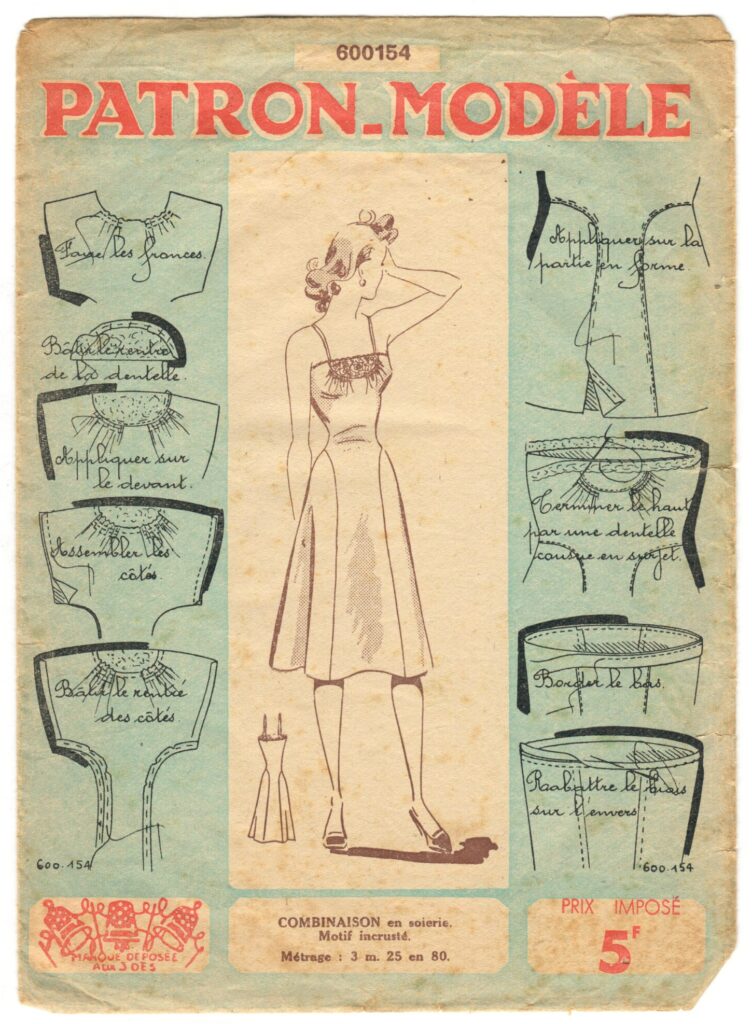 600154
PATRON-MODÈLE
Faire les fronces.
Bâtir le rentré
de la dentelle.
Appliquer sur
le devant.
Assembler les
côtés.
Bâtir le rentré
des côtés
600.154
Appliquer sur la
partie en forme.
Terminer le haut
par une dentelle
cousue en surjet.
Border le bas.
Rabattre le biais
sur l'envers
600.154
MARQUE DEPOSÉE
AUX 3 DÉS
COMBINAISON en soierie.
Motif incrusté.
Métrage : 3 m. 25 en 80.
PRIX IMPOSÉ
5F